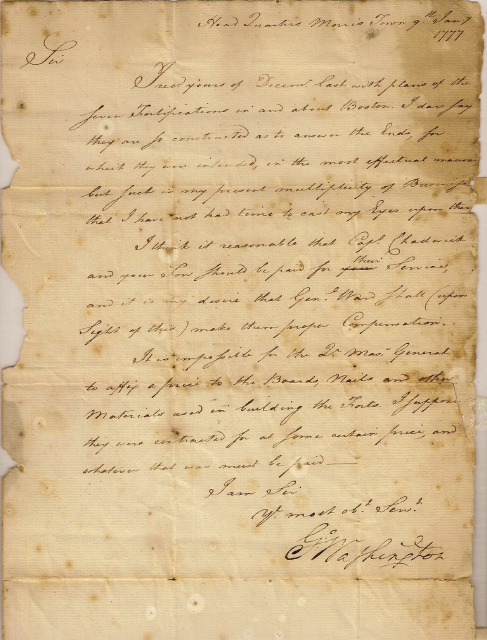 Head Quarters Morris Town 9th Jany
1777
Sir
I recd yours of Decemr last with plans of the
seven Fortifications in and about Boston. I dare say
they are so constructed as to answer the Ends, for
which they were intended, in the most effectual manner
but such is my present multiplicity of Business
that I have not had time to cast my Eyes upon them
I think it reasonable that Capt Chadwick
and your Son should be paid for their Services,
and it is my desire that Genl Ward shall (upon
Sight of this) make them proper Compensation.
It is impossible for the Qr Masr General
to affix a price to the Boards, Nails and other
Materials used in building the Forts. I suppose
they were contracted for at some certain price, and
whatever that was must be paid —
I am Sir
Yr most obt Servt
Go Washington